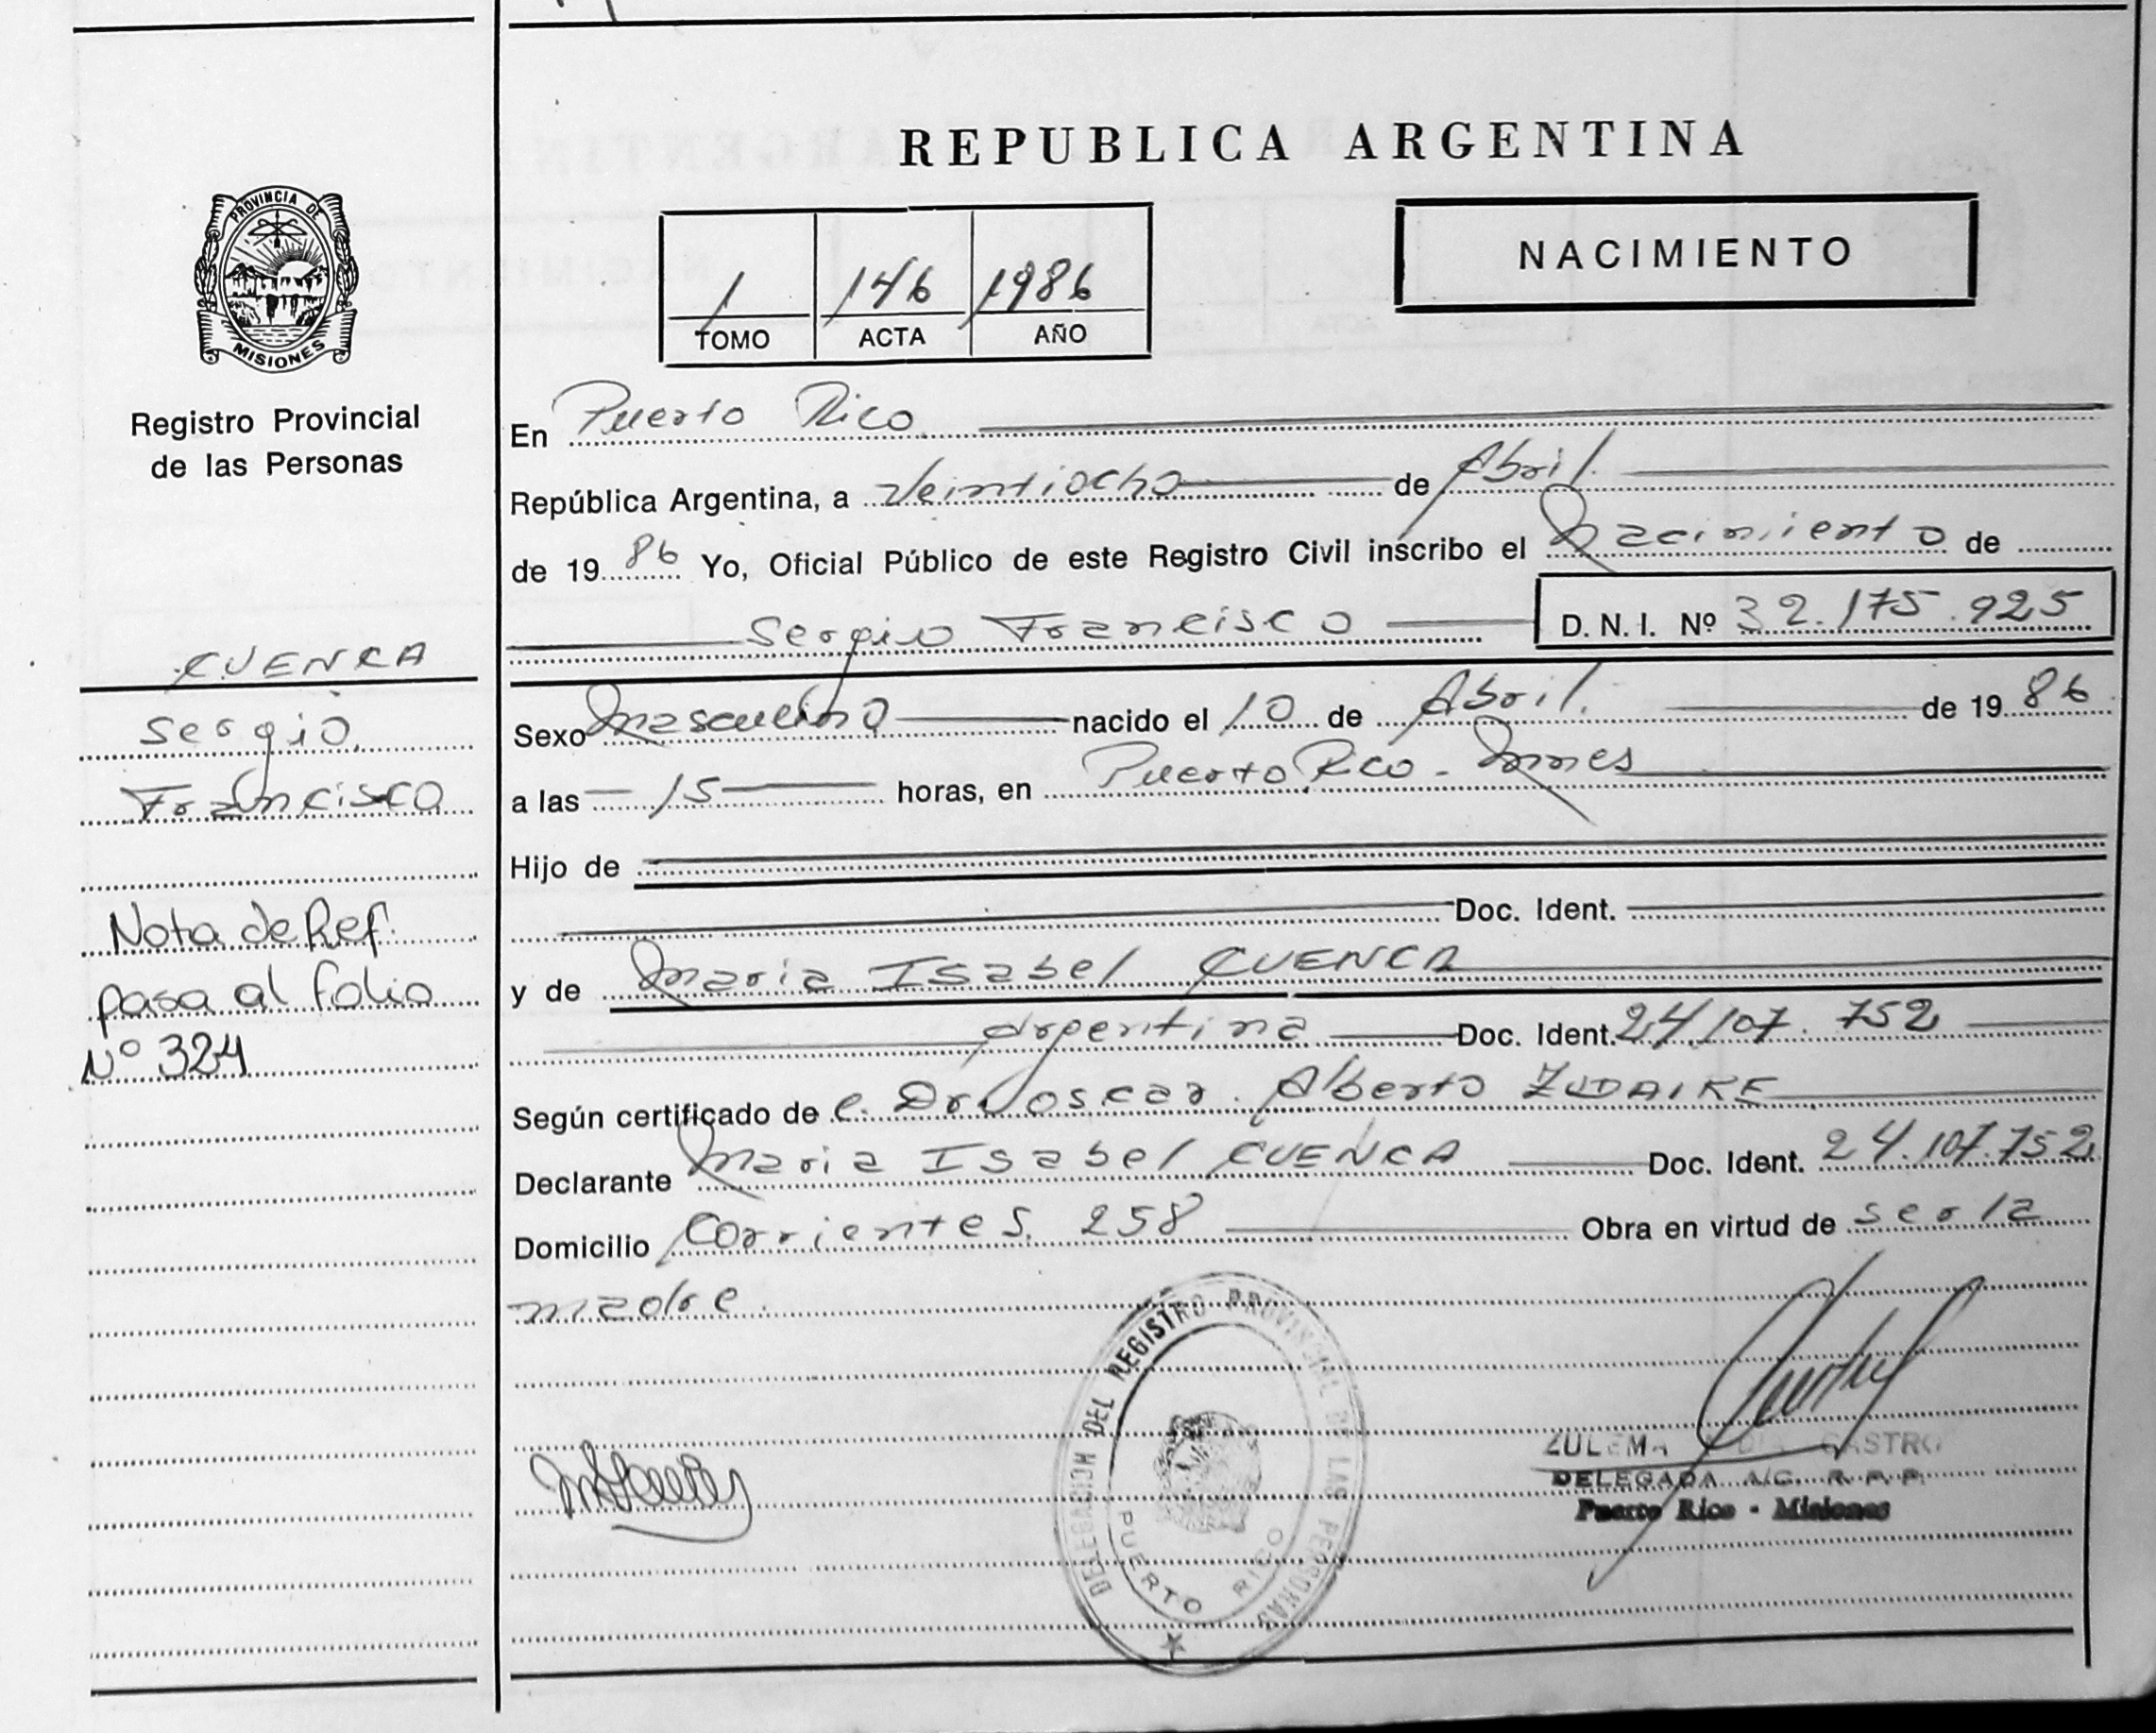 REPUBLICA ARGENTINA
PROVINCIA DE
MISIONES
Registro Provincial
de las Personas
1 146 1986
TOMO ACTA AÑO
NACIMIENTO
En Puerto Rico
República Argentina, a Veintiocho de Abril.
de 19 86 Yo, Oficial Público de este Registro Civil inscribo el Nacimiento de
Sergio Francisco D. N. I. Nº 32.175.925
CUENCA
Sergio
Francisco
Nota de Ref.
pasa al folio
Nº 324
Sexo Masculino nacido el 10 de Abril. de 19 86
a las 15 horas, en Puerto Rico - Mnes
Hijo de
Doc. Ident.
y de Maria Isabel CUENCA
Argentina Doc. Ident. 24.107.752
Según certificado de Dr. Oscar Alberto ZUDAIRE
Declarante Maria Isabel CUENCA Doc. Ident. 24.107.752
Domicilio Corrientes 258 Obra en virtud de ser la
madre.
DELEGACION DEL REGISTRO PROVINCIAL DE LAS PERSONAS
PUERTO RICO
ZULEMA CASTRO
DELEGADA A/C. R. P. P.
Puerto Rico - Misiones